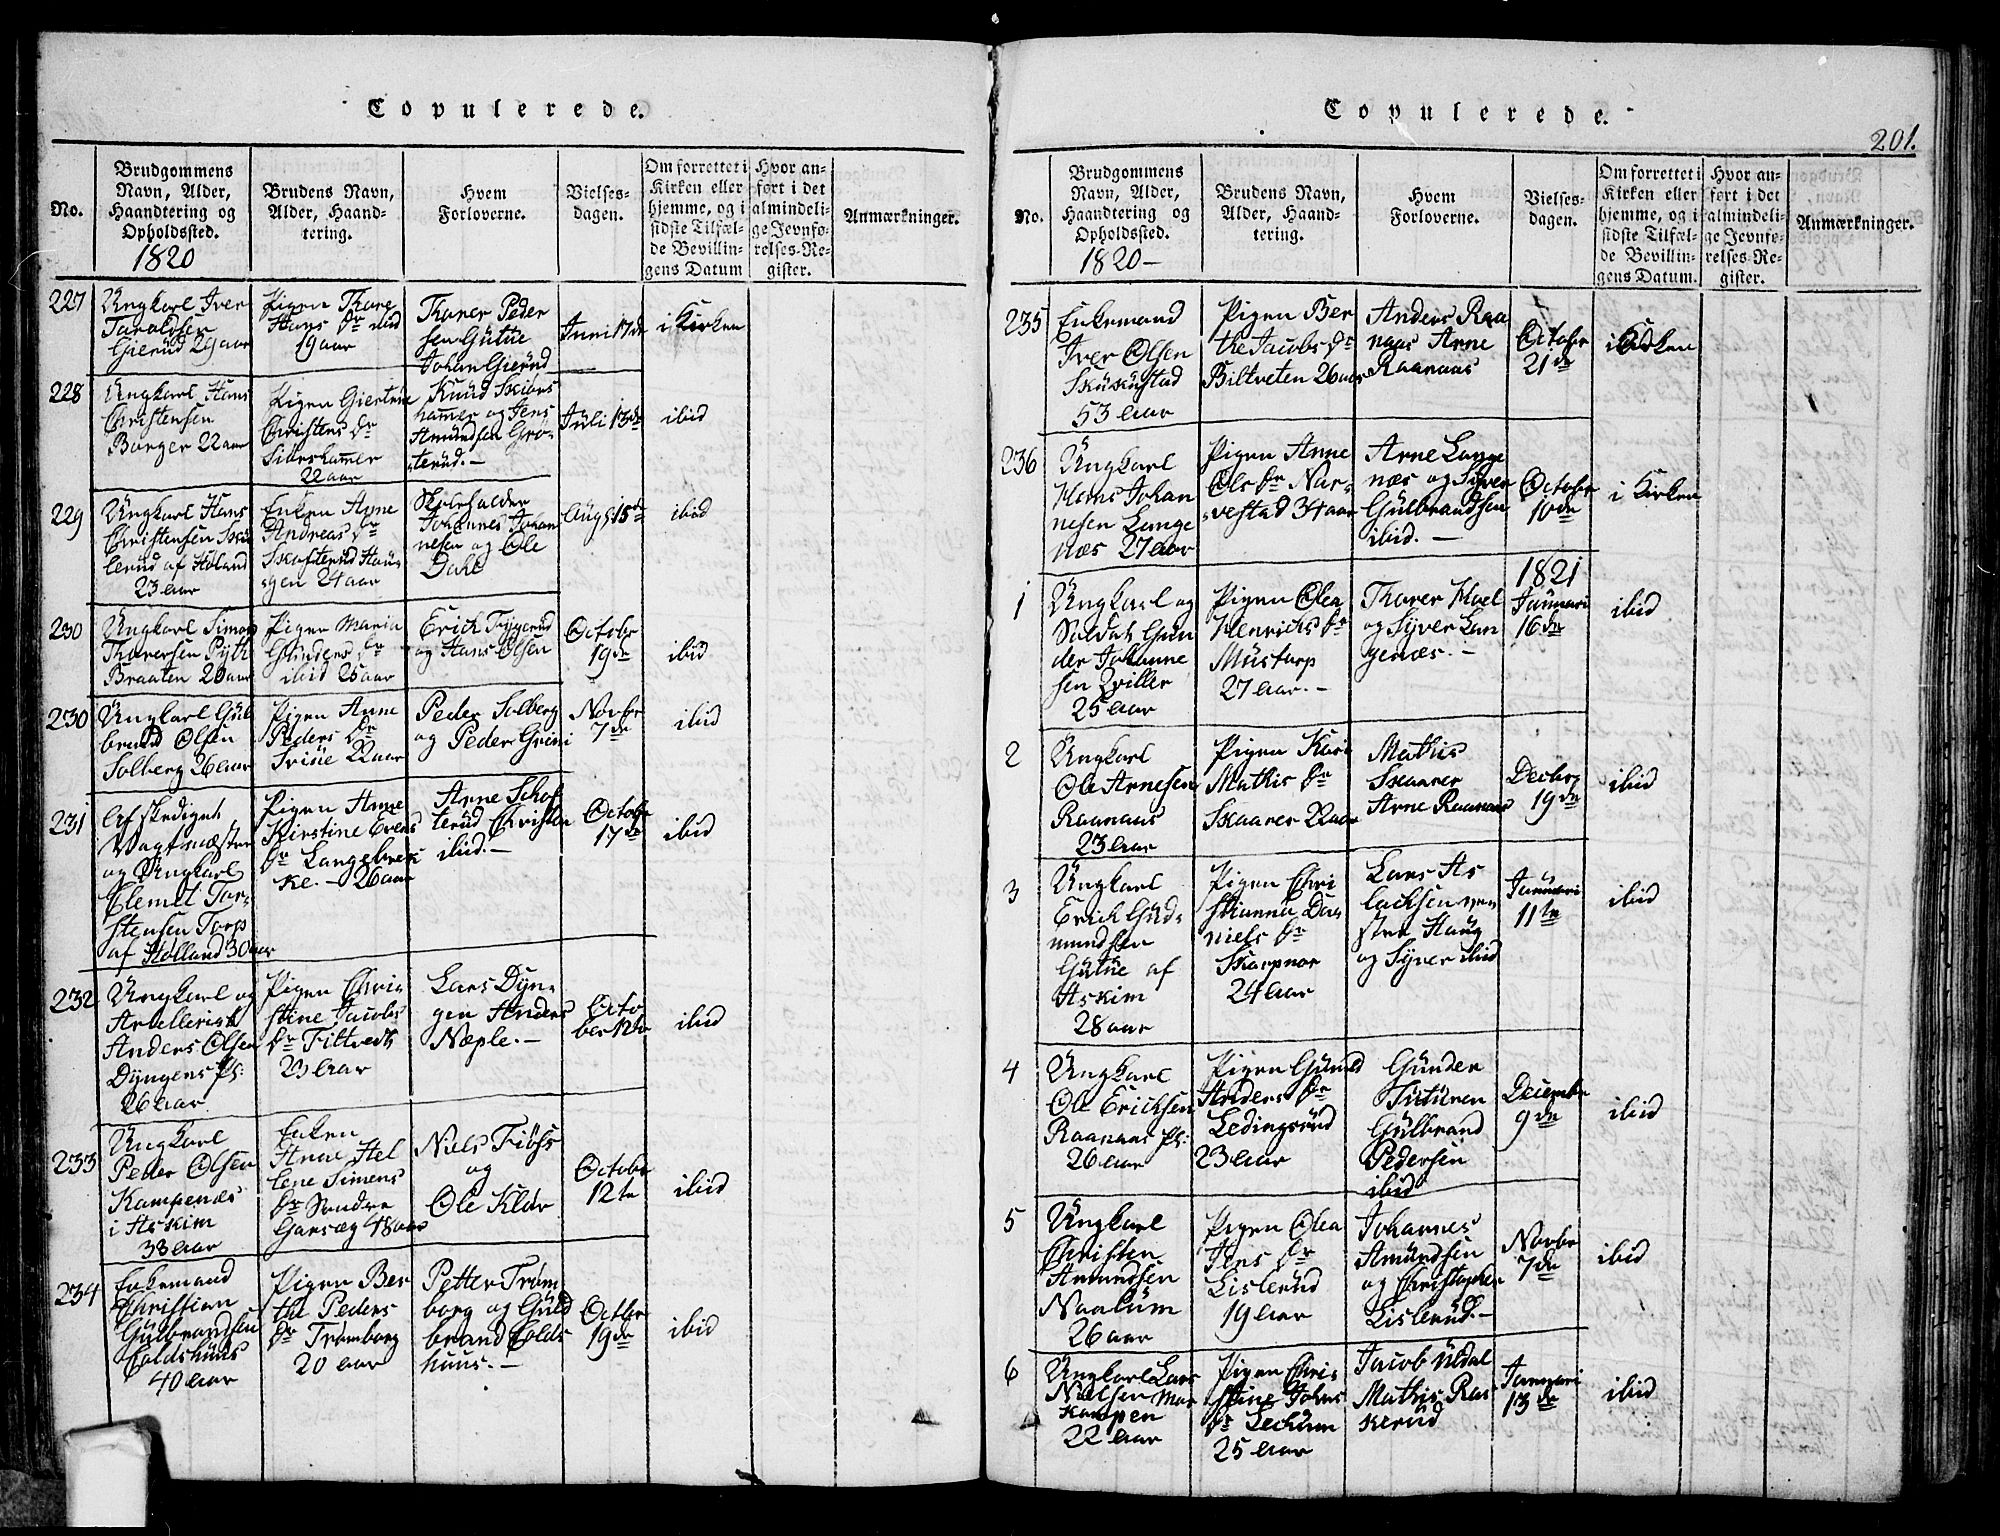 Copulerede.
No.
Brudgommens
Navn, Alder,
Haandtering og
Opholdssted.
1820
Brudens Navn,
Alder, Haand-
tering.
Hvem
Forloverne.
Vielses-
dagen.
Om forrettet i
Kirken eller
hjemme, og i
sidste Tilfæl-
de Bevillin-
gens Datum
Hvor an-
ført i det
almindeli-
ge Jevnfø-
relses-Re-
gister.
Anmærkninger.
227
Ungkarl Iver
Taraldsen
Gierud 29 aar
Pigen Thore
Hans Dr ibid
19 aar
Thorer Peder
sen Gutue
Johan Gierud
Juni 17de
i Kirken
228
Ungkarl Hans
Christensen
Borger 22 aar
Pigen
Christens Dr
22 aar
Knud
hammer og Jens
Amundsen Grø-
sterud.-
Juli 13de
ibid
229
Ungkarl Hans
Christensen Sku
lerud af Høland
23 aar
Enken Anne
Andreas Dr
Skofterud Hau-
gen 24 aar
Skoleholder
Johannes Johan
nesen og Ole
Dahl
Aug 15de
ibid
230
Ungkarl Simon
Thorersen Pyth
Braaten 26 aar
Pigen Maria
Gunders Dr
ibid 25 aar
Erich Tryggerud
og Hans Olsen
Octobr
19de
ibid
230
Ungkarl Gul
brand Olsen
Solberg 26 aar
Pigen Anne
Peders Dr
22 aar
Peder Solberg
og Peder Grini
Novbr
7de
ibid
231
Afskediget
Vagtmæster
og Ungkarl
Clemet Tor-
stensen Torp
af Høland 30 aar
Pigen Anne
Kirstine Evens
Dr Langebræ
ke. - 26 aar
Arne Schof
terud Christen
ibid.-
Octobr
17de
ibid
232
Ungkarl og
Artellerist
Anders Olsen
Dyngens Pl:
26 aar
Pigen Chri-
stine Jacobs
Dr Tiltvedt
23 Aar
Lars Dyn-
gen Anders
Næple.-
Octo
ber 12te
ibid
233
Ungkarl
Peder Olsen
Kampenæs
i Askim
33 Aar
Enken
Anne Hel
lene Simens
Dr Søndre
Garsæg 48 aar
Niels Fiøss
og
Ole Kløv
Octobr
12te
ibid
234
Enkemand
Christian
Gulbrandsen
Coldshuus
40 Aar
Pigen Ber
the Peders
Dr Trømborg
20 aar
Petter Trøm
borg og Guld
brand Colds
huus.-
Octbr
19de
ibid
Copulerede.
201.
No.
Brudgommens
Navn, Alder,
Haandtering og
Opholdssted.
1820-
Brudens Navn,
Alder, Haand-
tering.
Hvem
Forloverne.
Vielses-
dagen.
Om forrettet i
Kirken eller
hjemme, og i
sidste Tilfæl-
de Bevillin-
gens Datum.
Hvor an-
ført i det
almindeli-
ge Jevnfø-
relses-Re-
gister.
Anmærkninger.
235
Enkemand
Iver Olsen
Skukustad
53 Aar
Pigen Ber
the Jacobs Dr
Biltveten 26 aar
Anders Raa
naas Arne
Raanaas
Octobr
21de
i Kirken
236
Ungkarl
Hans Johan
nesen Lange
næs 27 aar
Pigen Anne
Ols Dr Nar-
vestad 34 aar
Arne Lange
næs og Syver
Gulbrandsen
ibid.-
Octobr
10de
i Kirken
1
Ungkarl og
Soldat Gun
der Johanne
sen Qviller
25 Aar
Pigen Olea
Henrichs Dr
Mustorp
27 Aar.-
Thorer Moel
og Syver Lan
genæs.-
1821
Januari
16de
ibid
2
Ungkarl
Ole Arnesen
Raanaas
23 Aar
Pigen Kari
Mathis Dr
Skaarer 22 aar
Mathis
Skaarer
Arne Raanaas
Decbr
19de
ibid
3
Ungkarl
Erich Gud-
mundsen
Gutue af
Askim
28 aar
Pigen Chri
stianna Da-
niels Dr
Skarpnor
24 Aar
Lars As
lachsen ve-
stre Haug
og Syver ibid
Januari
11te
ibid
4
Ungkarl
Ole Erichsen
Raanaas Pl:
26 Aar
Pigen Gunild
Anders Dr
Ledingsrud
23 Aar
Gunder
Tuturen
Gulbrand
Pedersen
ibid
Decembr
9de
ibid
5
Ungkarl
Christen
Amundsen
Naalum
26 aar
Pigen Olea
Jens Dr
Lislerud
19 Aar
Johannes
Amundsen
og Christopher
Lislerud.-
Novbr
7de
ibid
6
Ungkarl Lars
Nielsen Mor
kampen
22 Aar
Pigen Chri-
stine Johns
Dr Lechum
25 Aar
Jacob Uldal
Mathis Ras
kerud
Januari
13de
ibid